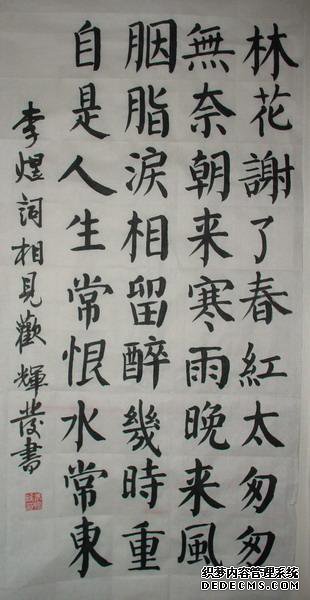 林花謝了春紅太匆匆
無奈朝来寒雨晚来風
胭脂淚相留醉幾時重
自是人生常恨水常東
李煜詞相見歡輝書
织梦内容管理系统
DEDECMS.COM